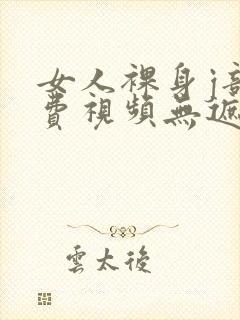 女人裸身j
費視頻無遮
雲太後